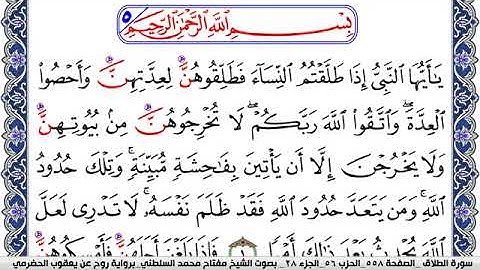 بِسْمِ اللَّهِ الرَّحْمَٰنِ الرَّحِيمِ
يَٰأَيُّهَا النَّبِىُّ إِذَا طَلَّقْتُمُ النِّسَآءَ فَطَلِّقُوهُنَّ لِعِدَّتِهِنَّ وَأَحْصُوا۟
الْعِدَّةَ ۖ وَاتَّقُوا۟ اللَّهَ رَبَّكُمْ ۖ لَا تُخْرِجُوهُنَّ مِنۢ بُيُوتِهِنَّ
وَلَا يَخْرُجْنَ إِلَّا أَن يَأْتِينَ بِفَٰحِشَةٍ مُّبَيِّنَةٍ ۚ وَتِلْكَ حُدُودُ
اللَّهِ ۚ وَمَن يَتَعَدَّ حُدُودَ اللَّهِ فَقَدْ ظَلَمَ نَفْسَهُۥ ۚ لَا تَدْرِى لَعَلَّ
اللَّهَ يُحْدِثُ بَعْدَ ذَٰلِكَ أَمْرًا ١ فَإِذَا بَلَغْنَ أَجَلَهُنَّ فَأَمْسِكُوهُنَّ
سورة الطلاق _ الصفحة ٥٥٨_ الحزب ٥٦_ الجزء ٢٨ _ بصوت الشيخ مفتاح محمد السلطني _ برواية روح عن يعقوب الحضرمي